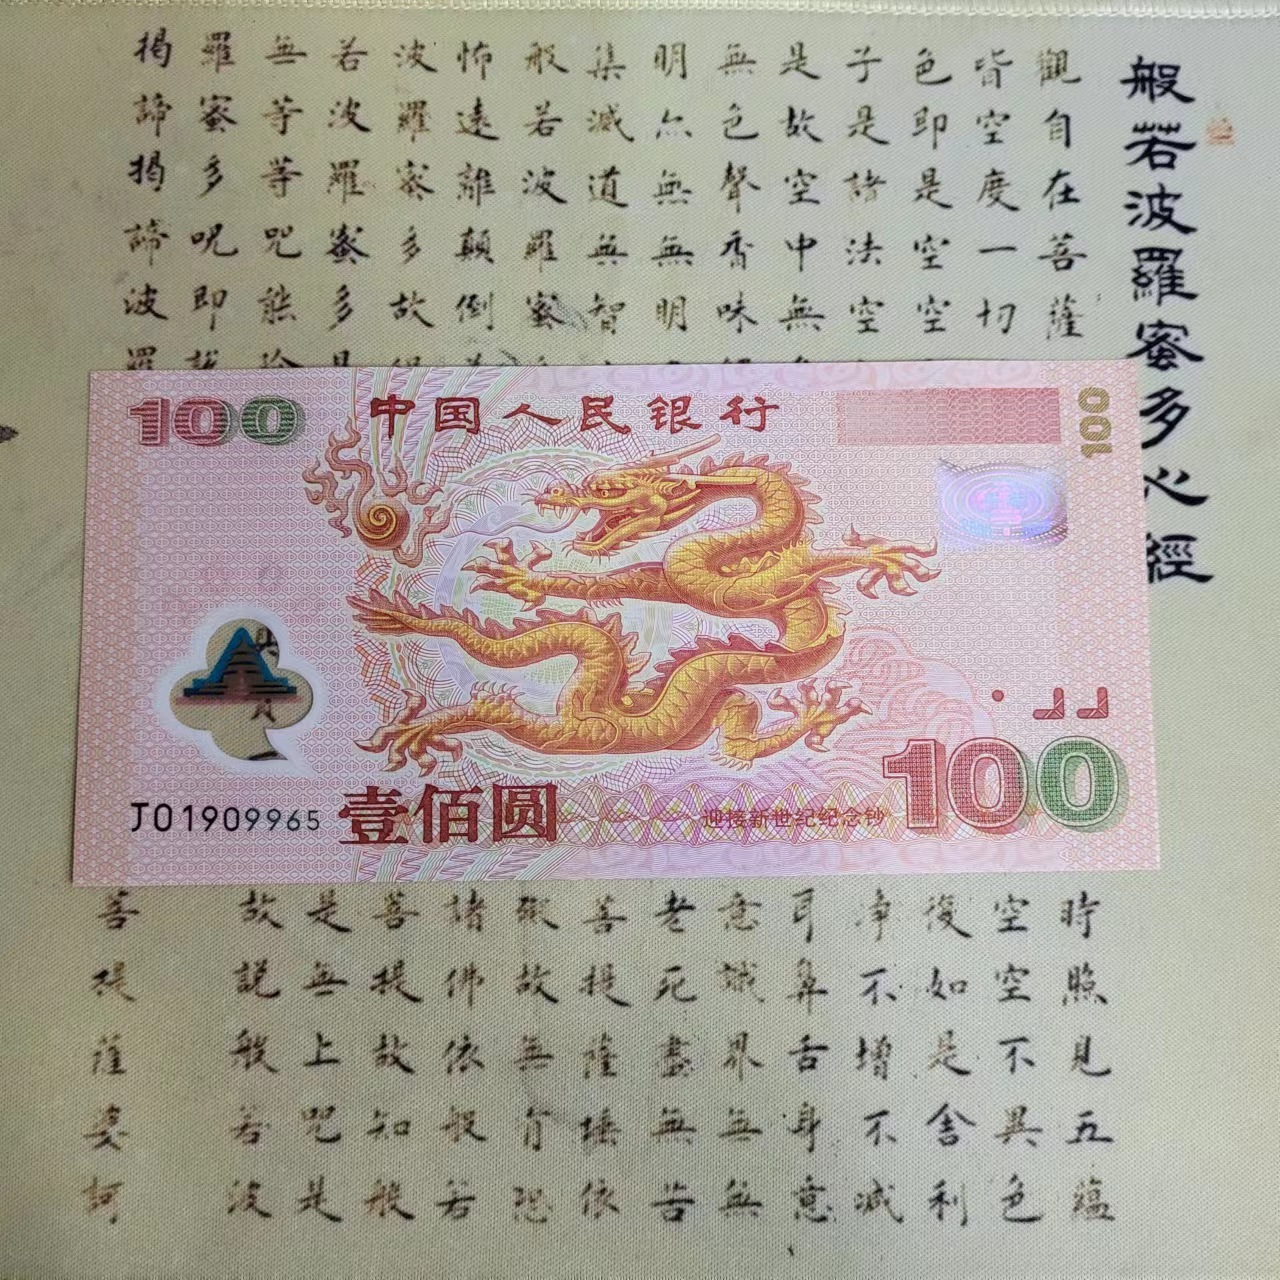 般若波羅蜜多心經
觀自在菩薩
時照見五蘊
皆空度一切
空空不異色
色即是空空
復如是舍利
子是諸法空
净不增不減
是故空中無
耳鼻舌身意
無色聲香味
意識界無無
明亦無無明
老死盡無苦
集滅道無智
菩提薩埵依
般若波羅蜜
礙故無有恐
怖遠離顛倒
諸佛依般若
波羅蜜多故
菩提故知般
若波羅蜜多
是無上咒是
無等等咒能
故說般若波
羅蜜多呪即
揭諦揭諦波羅
菩提薩婆訶
100
中国人民银行
100
J01909965
壹佰圆
迎接新世纪纪念钞
100